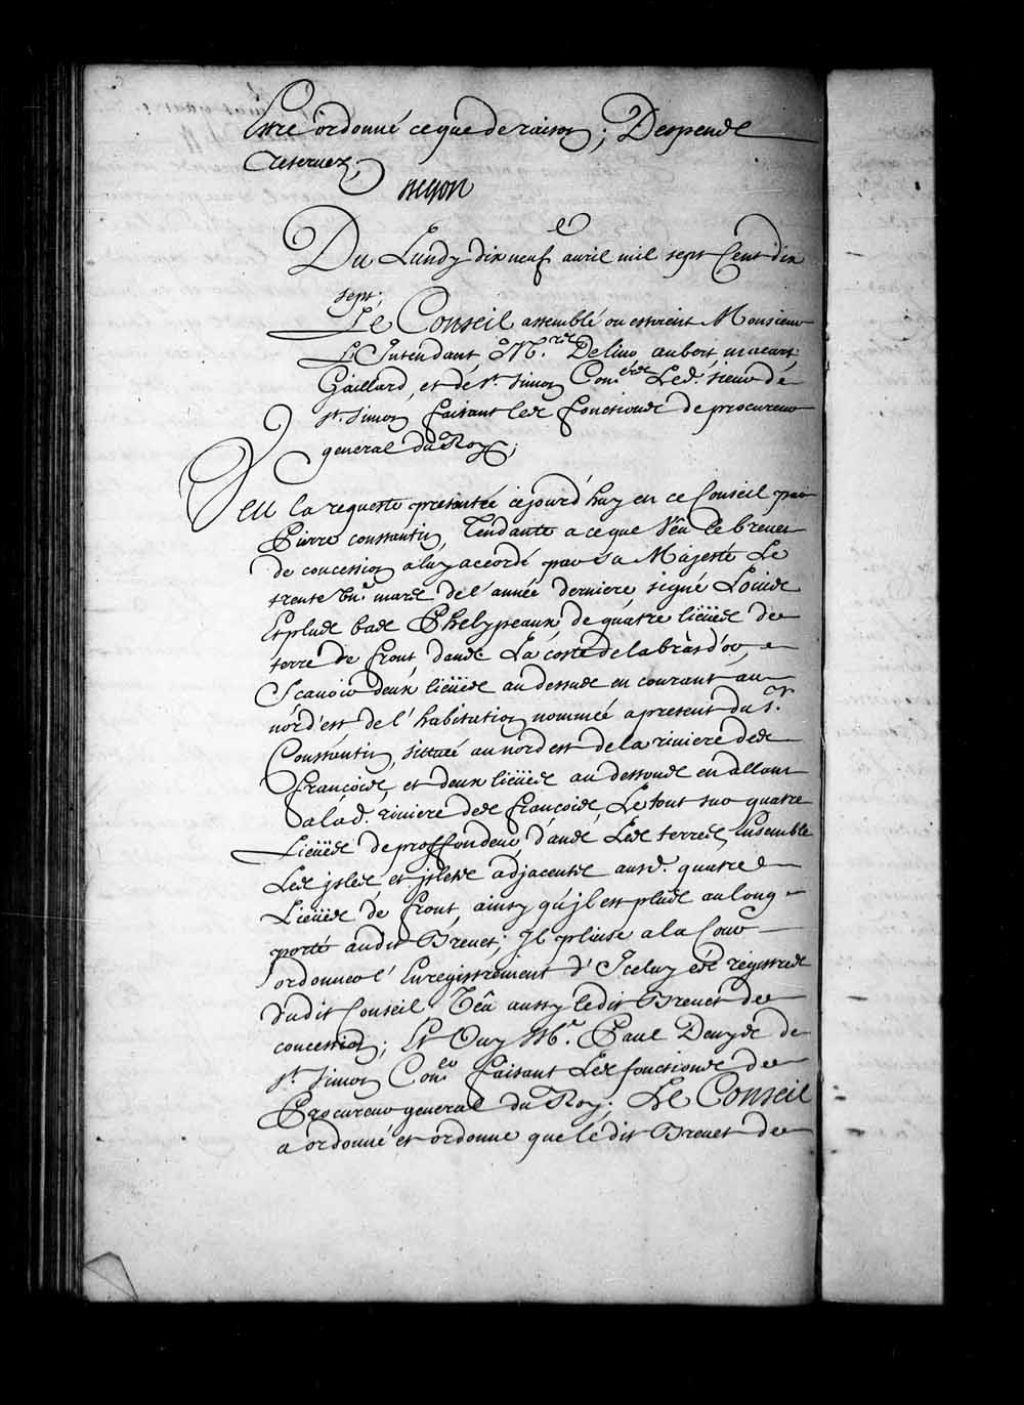 Estre ordonné ce que de raison; Despends
reservez,
Begon
Du Lundy dix neufe avril mil sept Cent dix
sept;
Le Conseil assemblé ou estoient Monsieur
L'Intendant, Mrs Delino, aubert, macart,
Gaillard, et de st. Simon Coners Led. sieur de
st. Simon faisant les fonctions de procureur
general du Roy;
Veu la requeste presentée cejourd'huy en ce Conseil par
Pierre constantin, Tendante a ce que Veu le brevet
de concession a luy accordé par sa Majesté Le
trente un mars de l'année derniere signé Louis
Et plus bas Phelypeaux de quatre lieües de
terre de front, dans La coste de labrador,
Scavoir deux lieües au dessus en courant au
nord'est de l'habitation nommée a present du Sr.
Constantin, sittuée au nord est de la riviere des
françois, et deux lieües au dessous en allant
a lad. riviere des françois, Le tout sur quatre
Lieües de proffondeur, dans Les terres, Ensemble
Les isles, et islets adjacents ausd. quatre
Lieües de front, ainsy qu'jl est plus au long
porté audit Brevet; Jl plaise a la Cour
ordonner l'Enregistrement d'Jceluy és registres
dudit Conseil Veu aussy ledit Brevet de
concession; Et Ouy Mr. Paul Denys de
st. Simon Coner faisant Les fonctions de
Procureur general du Roy; Le Conseil
a ordonné et ordonne que ledit Brevet de